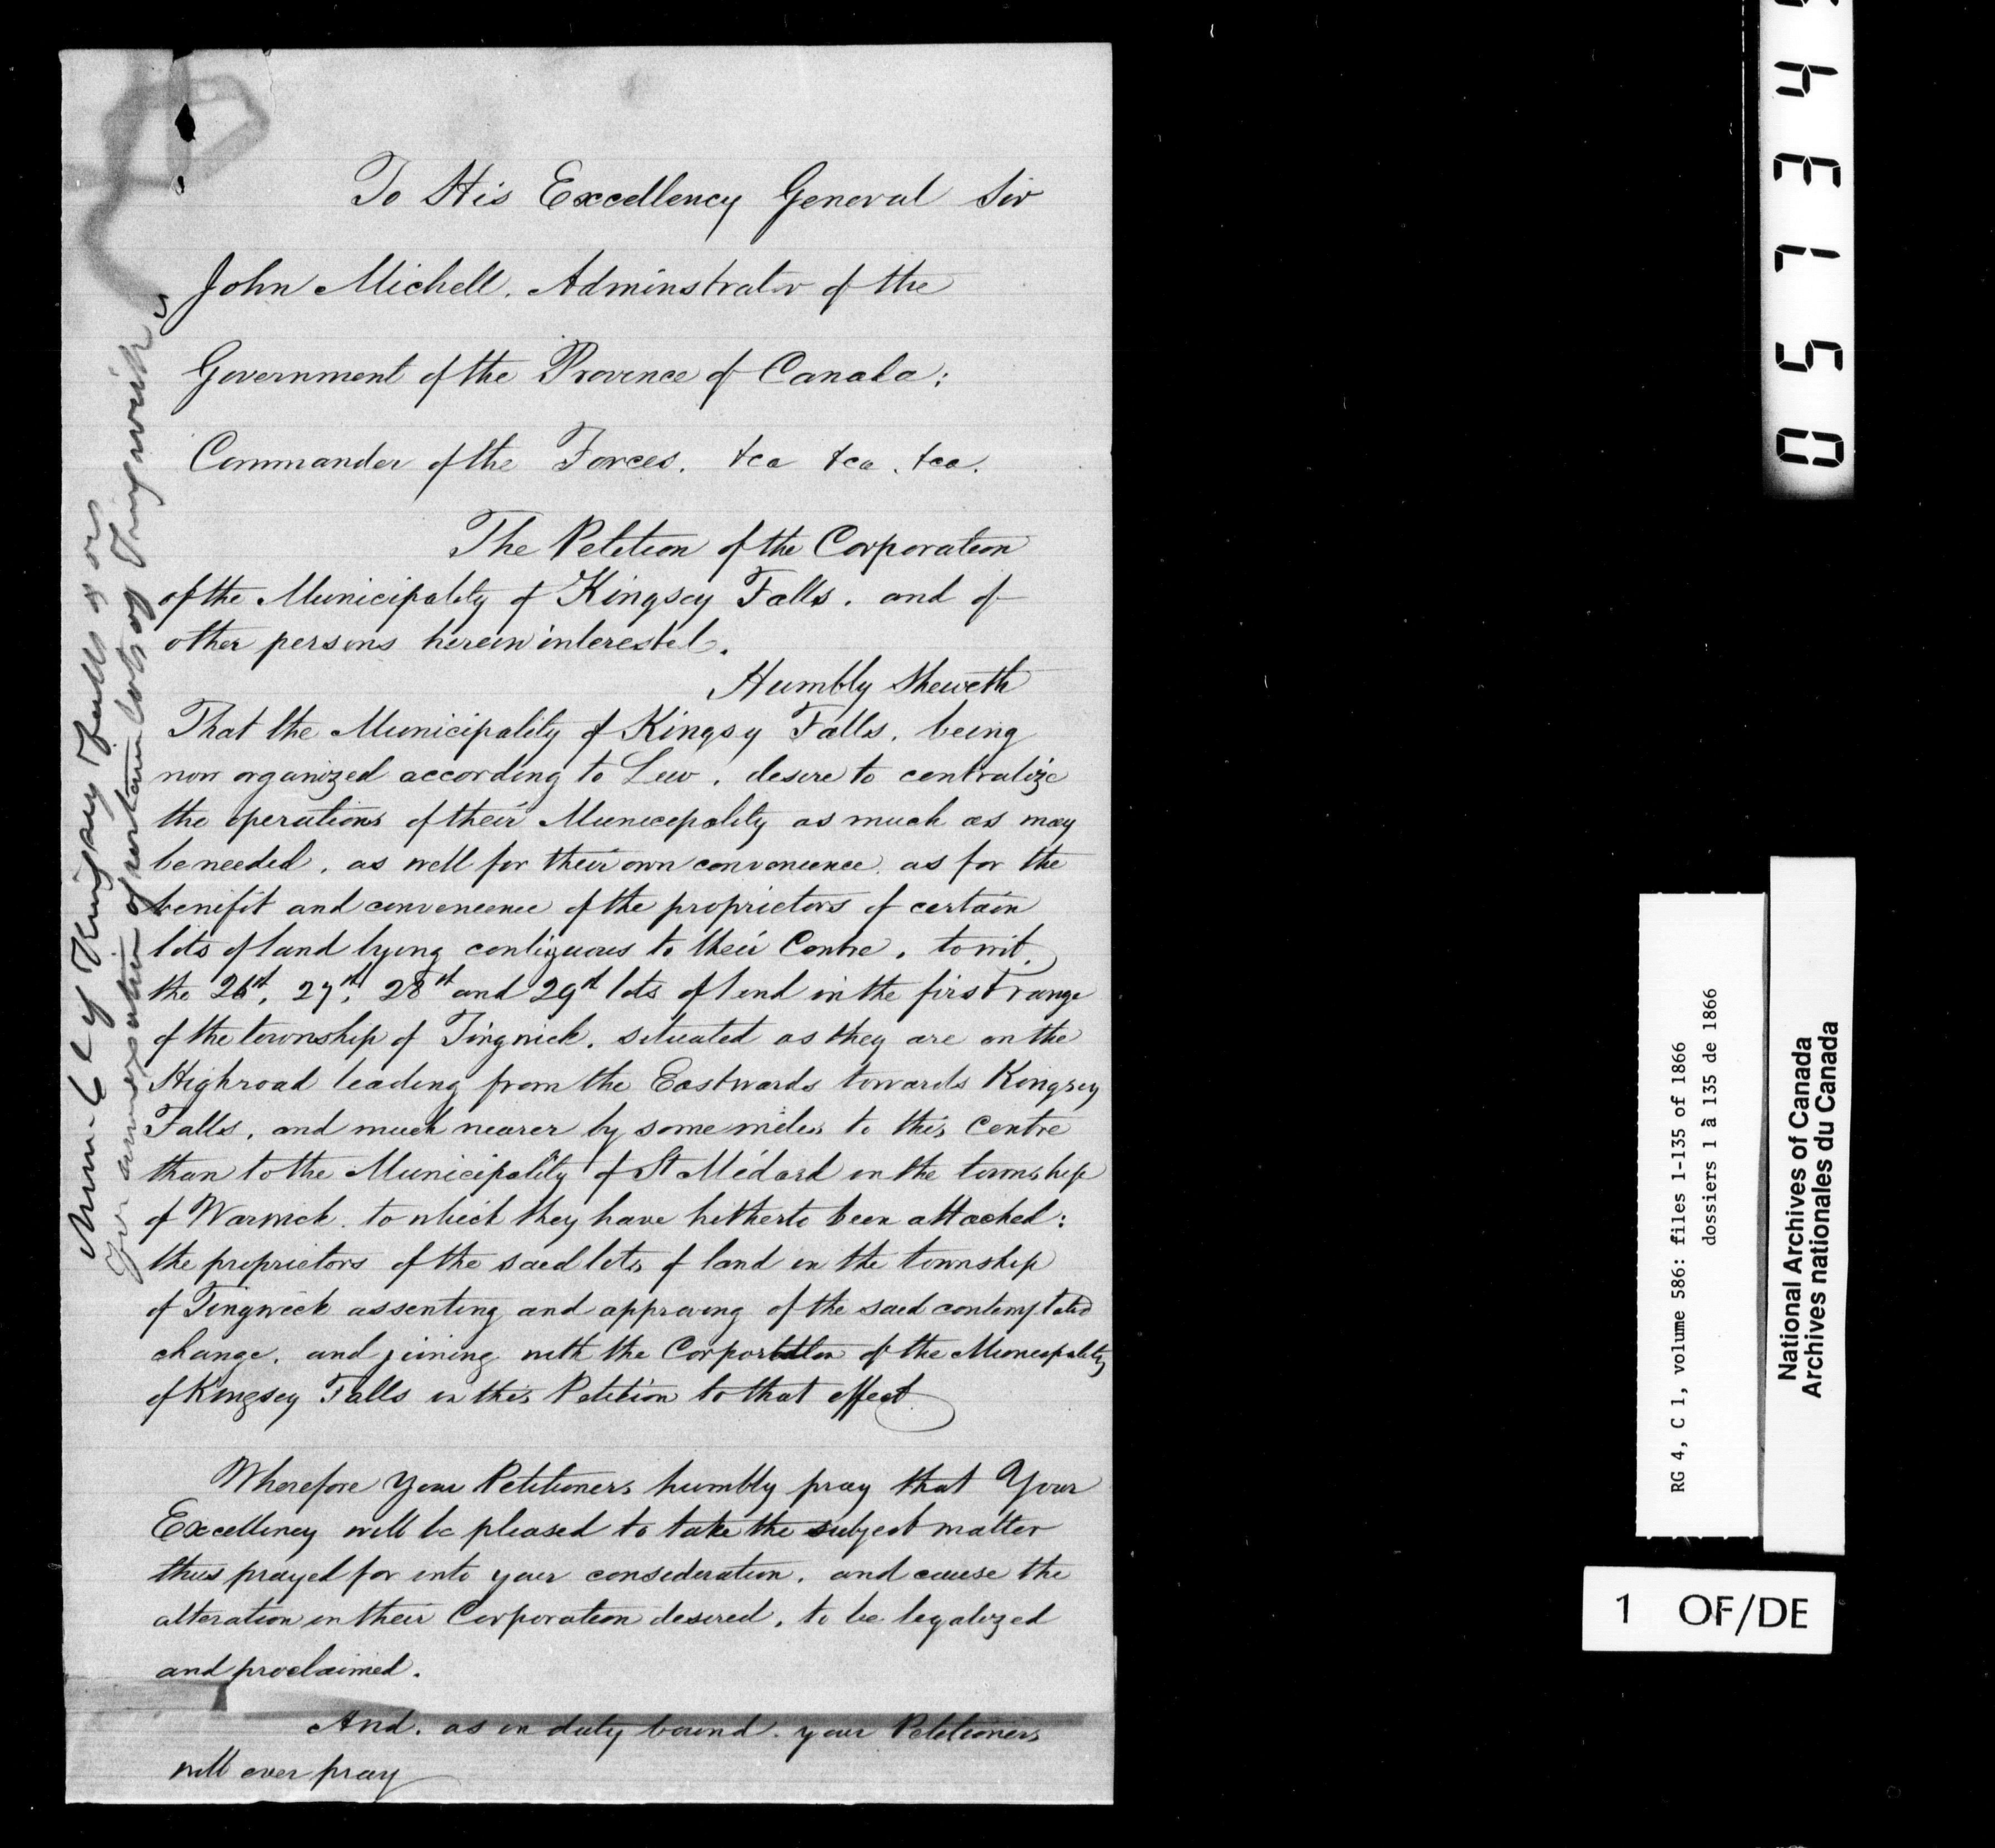 To His Excellency General Sir
John Michell. Adminstrator of the
Government of the Province of Canada:
Commander of the Forces. &ca &ca. &ca.
The Petition of the Corporation
of the Municipality of Kingsey Falls. and of
other persons herein interested.
Humbly Sheweth
That the Municipality of Kingsy Falls. being
now organized according to Law. desire to centralize
the operations of their Municipality as much as may
be needed. as well for their own convenience. as for the
benifit and convenience of the proprietors of certain
lots of land lying contiguous to their Centre. to wit.
the 26st, 27th, 28st and 29st lots of land in the first range
of the township of Tingwick. situated as they are on the
Highroad leading from the Eastwards towards Kingsey
Falls. and much nearer by some miles to this Centre
than to the Municipality of St Médard in the township
of Warwick. to which they have hitherto been attached:
the proprietors of the said lots of land in the township
of Tingwick assenting and approving of the said contemplated
change. and joining with the Corporation of the Municipality
of Kingsey Falls in this Petition to that effect
Wherefore Your Petitioners humbly pray that Your
Excellency will be pleased to take the subject matter
thus prayed for into your consideration. and cause the
alteration in their Corporation desired. to be legalized
and proclaimed.
And. as in duty bound. your Petitioners
will ever pray
Kingsey Falls & ors
for annexation of certain lots of Tingwick
0 5 1 3 4
RG 4, C 1, volume 586: files 1-135 of 1866
dossiers 1 à 135 de 1866
National Archives of Canada
Archives nationales du Canada
1 OF/DE